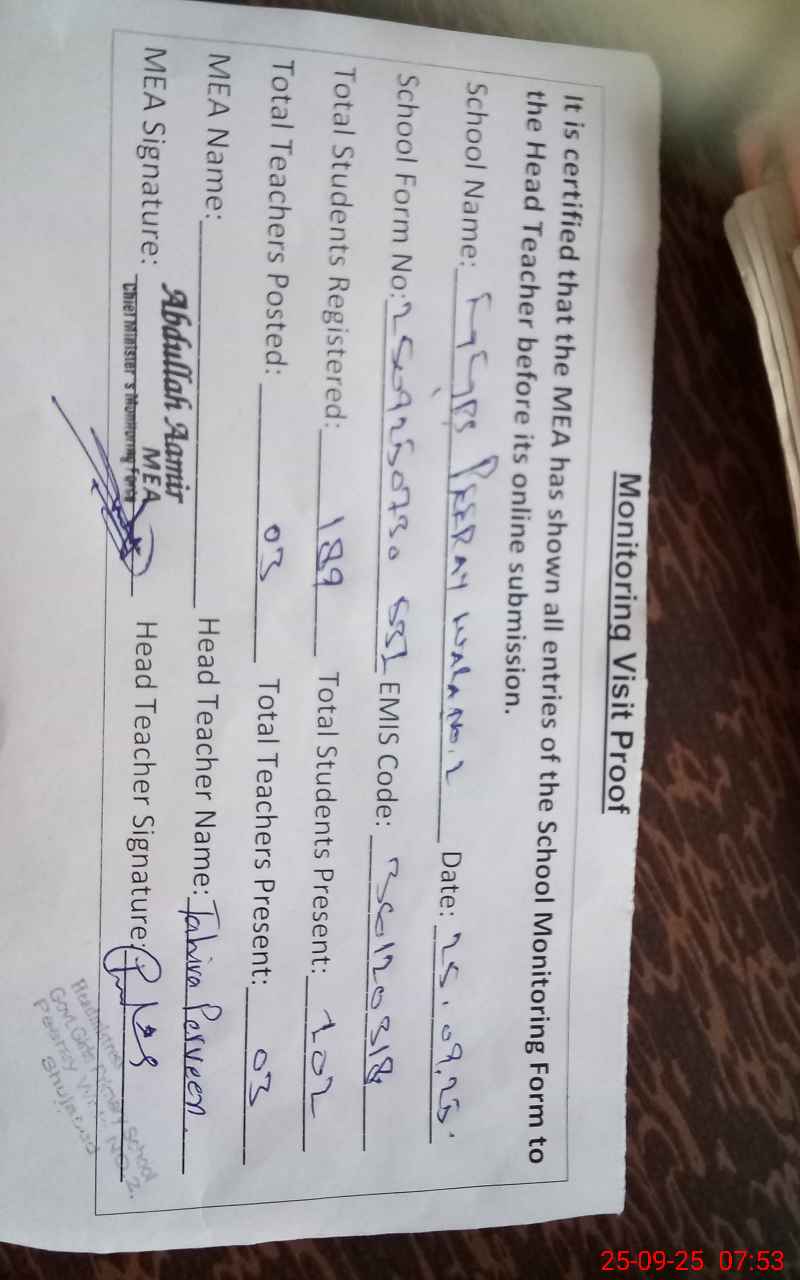 Monitoring Visit Proof
It is certified that the MEA has shown all entries of the School Monitoring Form to
the Head Teacher before its online submission.
School Name: PEERAY WALA No.2 Date: 25.09.25.
School Form No: EMIS Code: 36120318
Total Students Registered: 189 Total Students Present: 102
Total Teachers Posted: 03 Total Teachers Present: 03
MEA Name: Abdullah Aamir Head Teacher Name: Tahira Parveen
MEA
MEA Signature: Chief Minister's Monitoring Force Head Teacher Signature:
School
No 2.
Shujabad
25-09-25 07:53